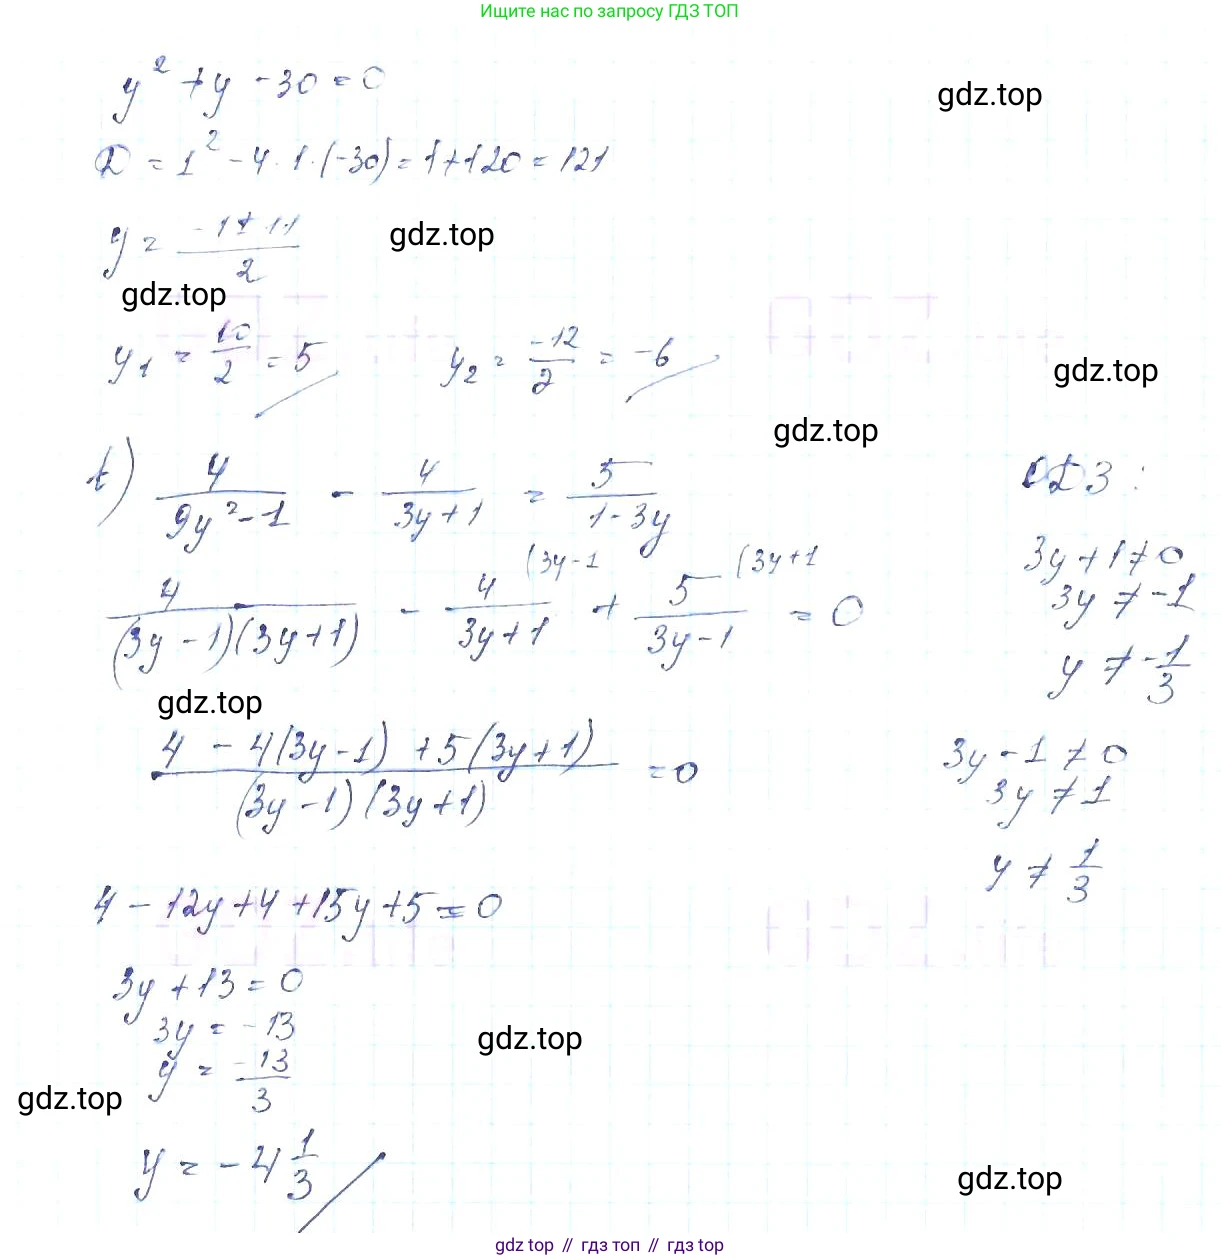 Ищите нас по запросу ГДЗ ТОП
y² + y - 30 = 0
gdz.top
D = 1² - 4 · 1 · (-30) = 1 + 120 = 121
y = (-1 ± 11)/2
gdz.top
gdz.top
y₁ = 10/2 = 5 y₂ = -12/2 = -6
gdz.top
gdz.top
t) 4/(9y² - 1) - 4/(3y + 1) = 5/(1 - 3y)
ОДЗ:
4/((3y - 1)(3y + 1)) - 4/(3y + 1) (3y - 1 + 5/(3y - 1) (3y + 1 = 0
3y + 1 ≠ 0
3y ≠ -1
y ≠ -1/3
gdz.top
(4 - 4(3y - 1) + 5(3y + 1))/((3y - 1)(3y + 1)) = 0
3y - 1 ≠ 0
3y ≠ 1
y ≠ 1/3
4 - 12y + 4 + 15y + 5 = 0
3y + 13 = 0
3y = -13
gdz.top
y = -13/3
gdz.top
y = -4 1/3
gdz.top
gdz top // гдз топ // гдз top